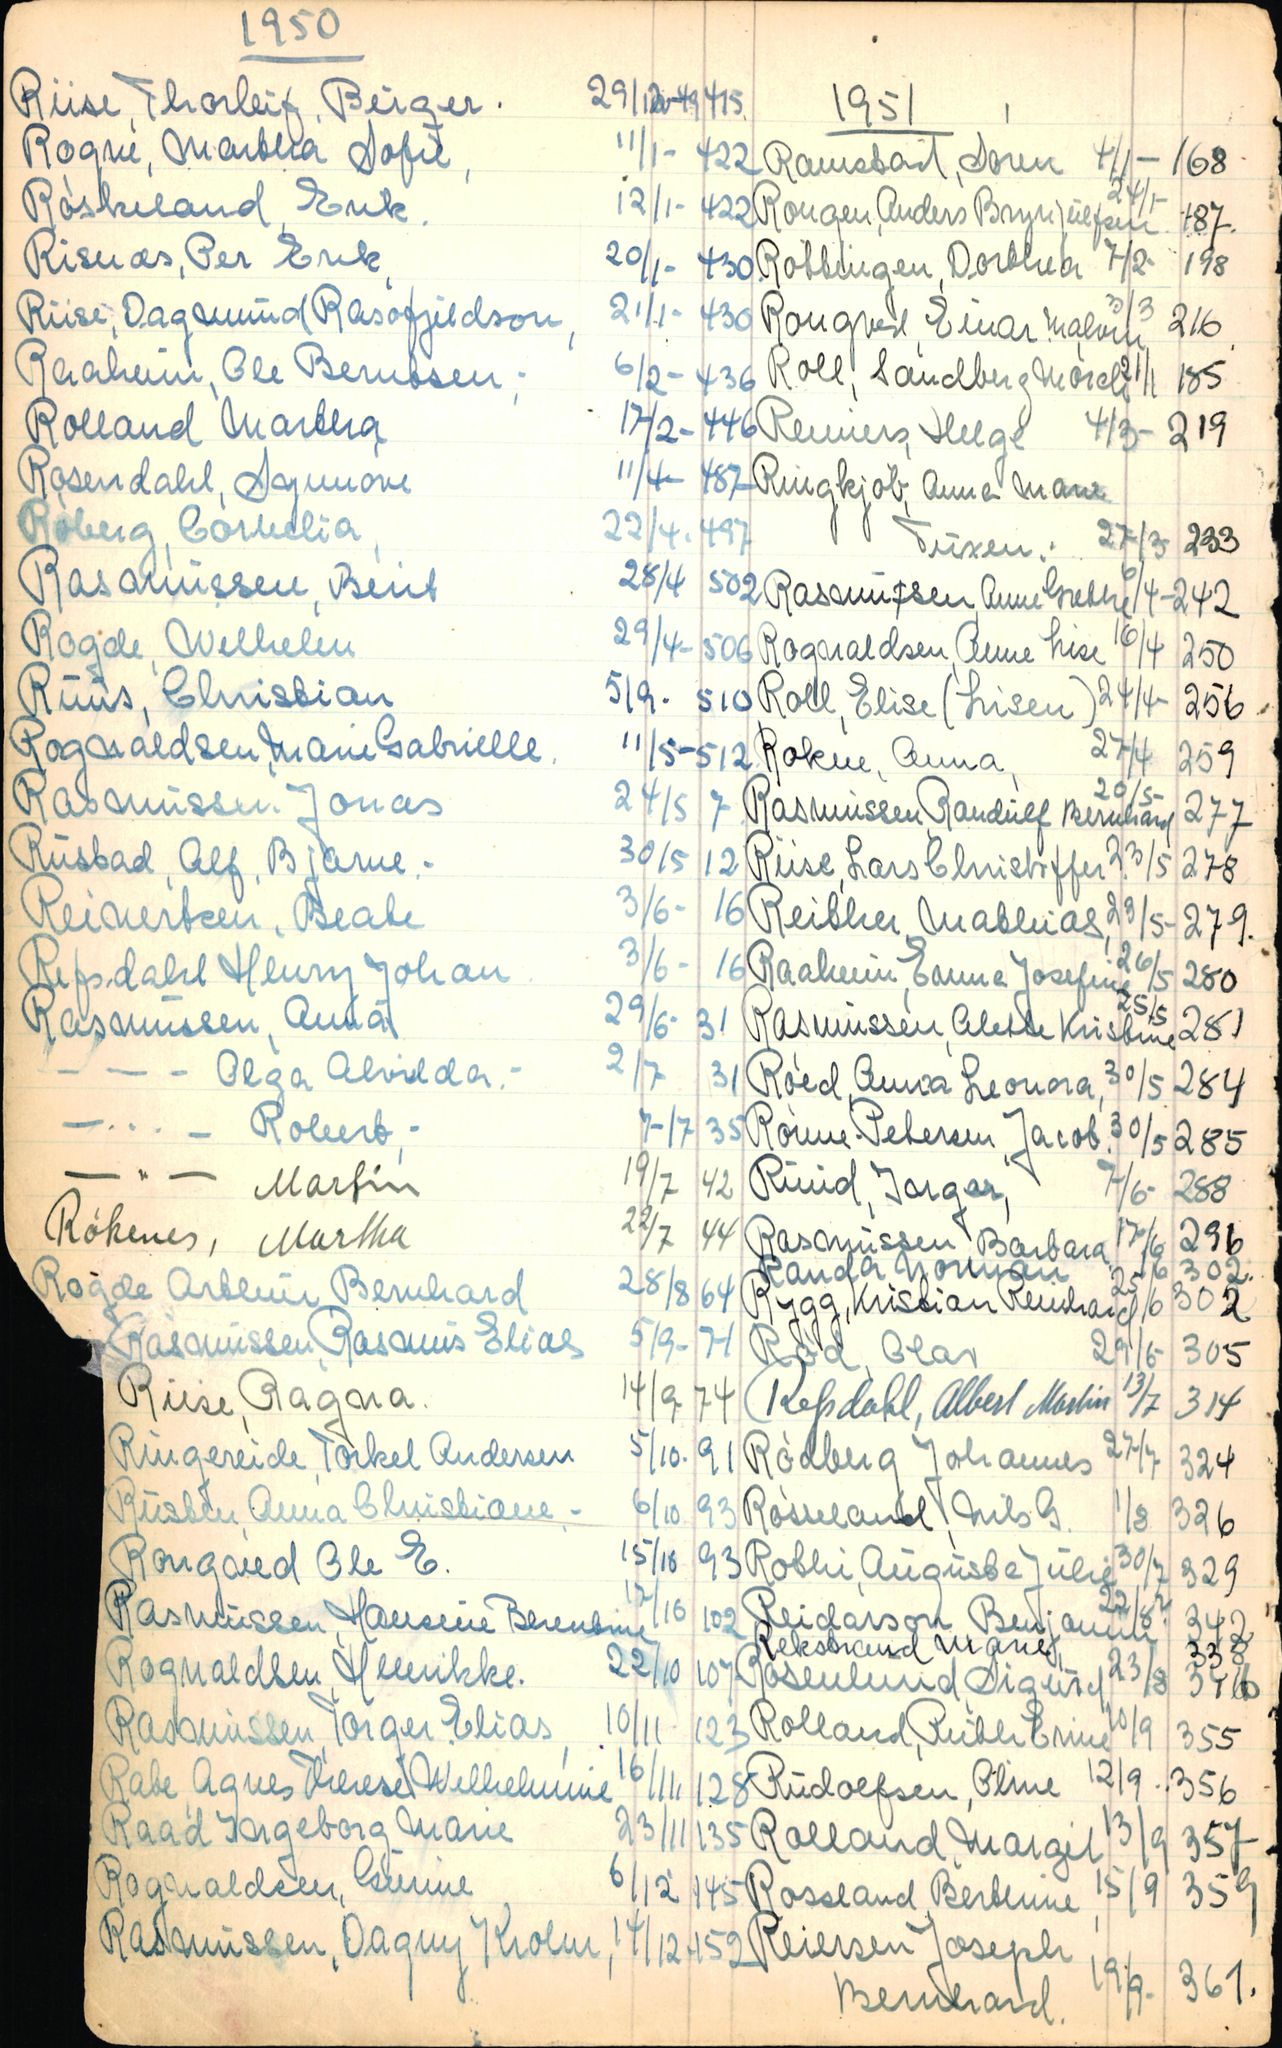 1950
Riise, Thorleif, Birger. 29/12-49 415
Rogne, Martha Sofie, 11/1- 422
Røskeland, Erik. 12/1- 422
Risnæs, Per Erik, 20/1- 430
Riise, Dagmund 21/1- 430
Raaheim, Ole Berntsen, 6/2- 436
Rolland Martha 17/2- 446
Rosendahl, Synnøve 11/4- 487
Røberg, Cornelia, 22/4. 497
Rasmussen, Berit 28/4 502
Rogde, Wilhelm 29/4- 506
Ruus, Christian 5/9. 510
Rognaldsen, Marie Gabrielle. 11/5- 512
Rasmussen. Jonas 24/5 7
Rustad, Alf, Bjarne.- 30/5 12
Reinertsen, Beate 3/6- 16
Refsdahl Henry Johan 3/6- 16
Rasmussen, Anna 29/6- 31
— — — Olga Alvilda.- 2/7 31
— .... — Robert,- 7/7 35
— " — Martin 19/7 42
Røkenes, Martha 22/7 44
Rogde Arthur Bernhard 28/8 64
Rasmussen, Rasmus Elias 5/9- 71
Riise, Ragna. 14/9 74
Ringereide, Torkel Andersen 5/10. 91
Rusten, Anna Christiane.- 6/10 93
Rongved Ole E. 15/10 93
Rasmussen, Hansine Berentine 17/10 102
Rognaldsen, Henrikke. 22/10 107
Rasmussen, Torger Elias, 10/11 123
Rabe Agnes Therese Wilhelmine 16/11, 128
Raad Ingeborg Marie 23/11 135
Rognaldsen, Gurine 6/12 145
Rasmussen, Dagny Krohn, 14/12 152
1951
Ramstad, Søren 4/1- 168
Rongen, Anders Brynjulfsen 24/1- 187.
Rottingen, Dorthea 7/2- 198
Rongved, Einar Malvin, 3/3 216.
Roll, Sandberg Mørch 21/1 185
Reimers, Helge 4/3- 219
Ringkjøb, Anna Marie
Tuxen.- 27/3 233
Rasmussen, Anne Grethe 6/4- 242
Rognaldsen, Anne Lise 16/4 250
Roll, Elise (Lisen) 24/4- 256
Rokne, Anna, 27/4 259
Rasmussen, Randulf Bernhard 20/5- 277
Riise, Lars Christoffer 23/5 278
Reither, Mathias, 23/5- 279.
Raaheim, Emma Josefine 26/5 280
Rasmussen, Alette Kristine 25/5 281
Røed, Anna Leonora, 30/5 284
Rønne-Petersen, Jacob. 30/5 285
Ruud, Torger, 7/6- 288
Rasmussen Barbara 17/6 296
Randa Norman 6 302.
Rygg, Kristian Reinhard 25/6 302
Rød, Olav 29/6- 305
Refsdahl, Albert Martin 13/7 314
Rødberg Johannes 27/7 324
Røsseland, Nils G. 1/8 326
Rothi, Augusta Julie 30/7 329
Reidarson Benjamin 22/8 342
Rekstrand Marie, 338
Rosenlund, Sigurd 23/8
Rolland, 10/9 355
Rudolfsen, Oline 12/9.. 356
Rolland, Margit 13/9 357
Rosseland, Berthine, 15/9 359
Reiersen Joseph
Bernhard. 19/9- 361.